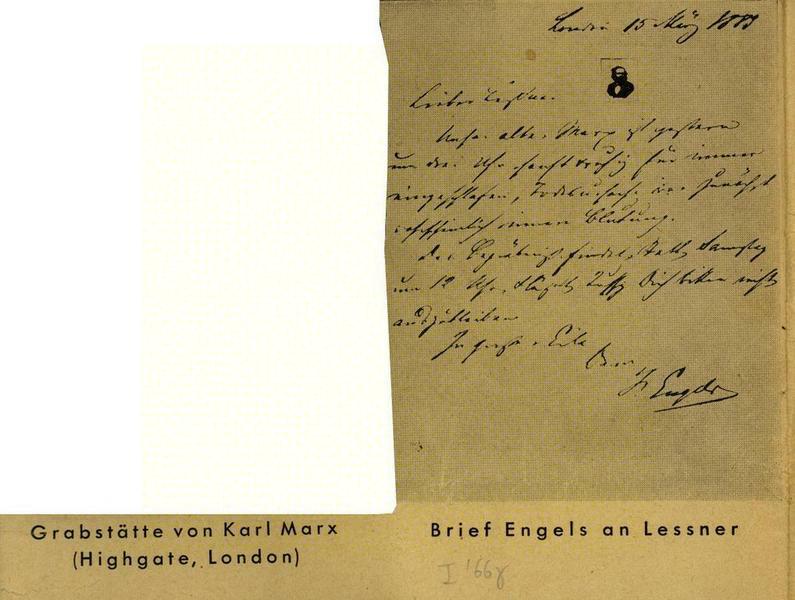 London 15 März 1883
8
Lieber Leßner.
Unser alter Marx ist gestern
um drei Uhr sanft & ruhig für immer
eingeschlafen, Todesursache war zunächst
wahrscheinlich innere Blutung.
Das Begräbniß findet statt Samstag
um 12 Uhr, & läßt Tussy Dich bitten nicht
auszubleiben
In großer Eile
Dein
F. Engels
Grabstätte von Karl Marx
(Highgate, London)
Brief Engels an Lessner